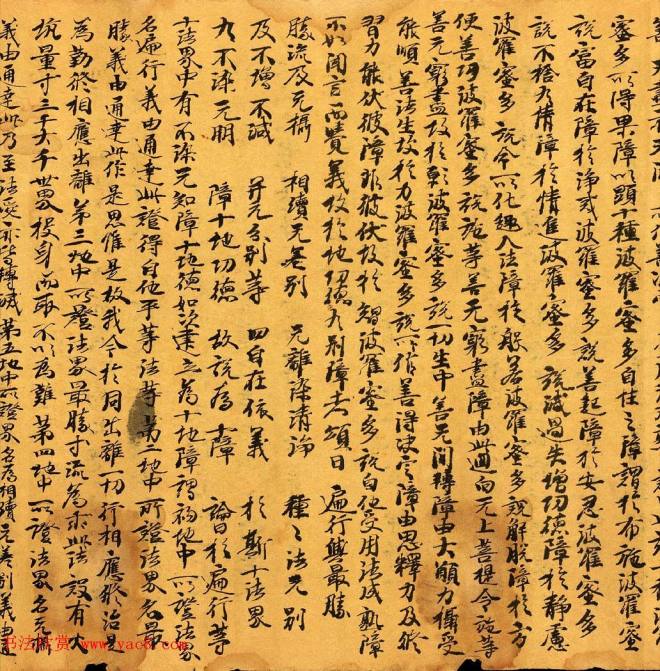 蜜多所得果障以顯十種波羅蜜多自性之障謂於布施波羅蜜
說富自在障於淨戒波羅蜜多說善趣障於安忍波羅蜜多
說不捨有情障於精進波羅蜜多說減過失增功德障於靜慮
波羅蜜多說令所化趣入法障於般若波羅蜜多說解脫障於方
便善巧波羅蜜多說施等善无窮盡障由此迴向无上菩提令施等
善无窮盡故於願波羅蜜多說一切生中善无間轉障由大願力攝受
能順善法生故於力波羅蜜多說所作善得決定障由思擇力及修
習力能伏彼障非彼伏故於智波羅蜜多說自他受用法成熟障
不如聞言而覺義故於地功德有別障者頌曰 遍行與最勝
勝流及无攝 相續无差別 无雜染清淨 種々法无別
及不增不減 并无分別等 四自在依義 於斯十法界
有不染无明 障十地功德 故說為十障 論曰於遍行等
十法界中有不染无知障十地功德如次建立為十地障謂初地中所證法界
名遍行義由通達此證得自他平等法等第二地中所證法界名最
勝義由通達此作是思惟是故我今於同出離一切行相應修治是
為勤修相應出離第三地中所證法界最勝等流為求此法設有火
坑量等三千大千世界投身而取不以為難第四地中所證法界名无
義由通達此乃至法愛亦皆轉滅第五地中所證界名為相續无差別義由
书法欣赏 www.yac8.com